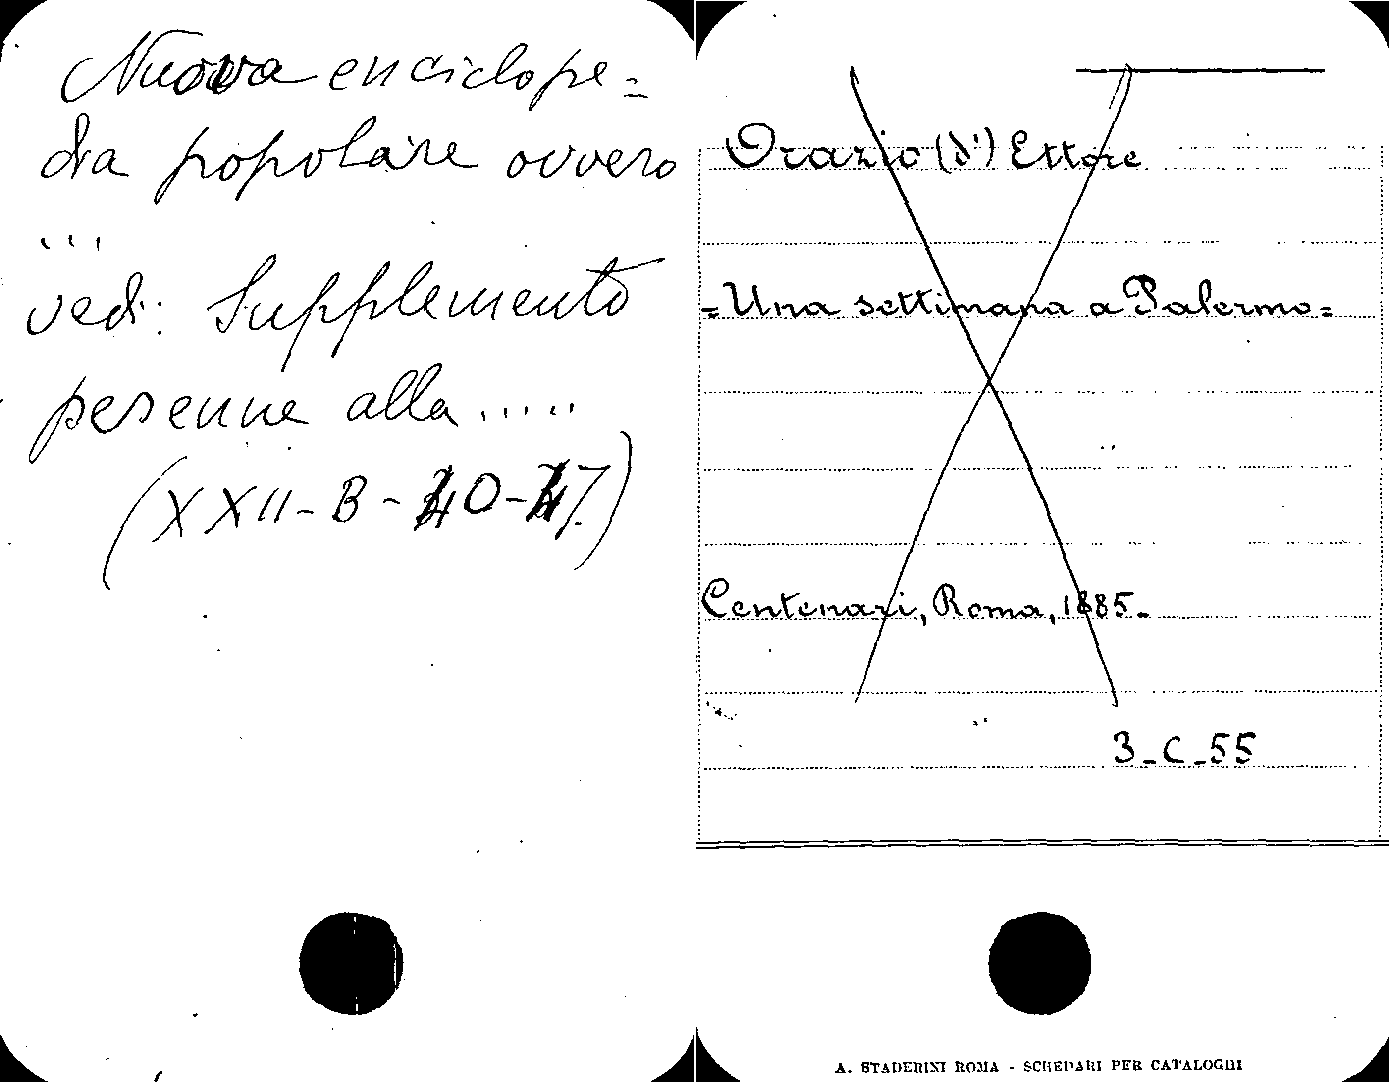 Nuova enciclope=
dia popolare ovvero
...
vedi: Supplemento
perenne alla.....
(XXII-B-40-47)
Orazio (d') Ettore
=Una settimana a Palermo=
Centenari, Roma, 1885-
3-C-55
A. STADERINI ROMA - SCHEDARI PER CATALOGHI